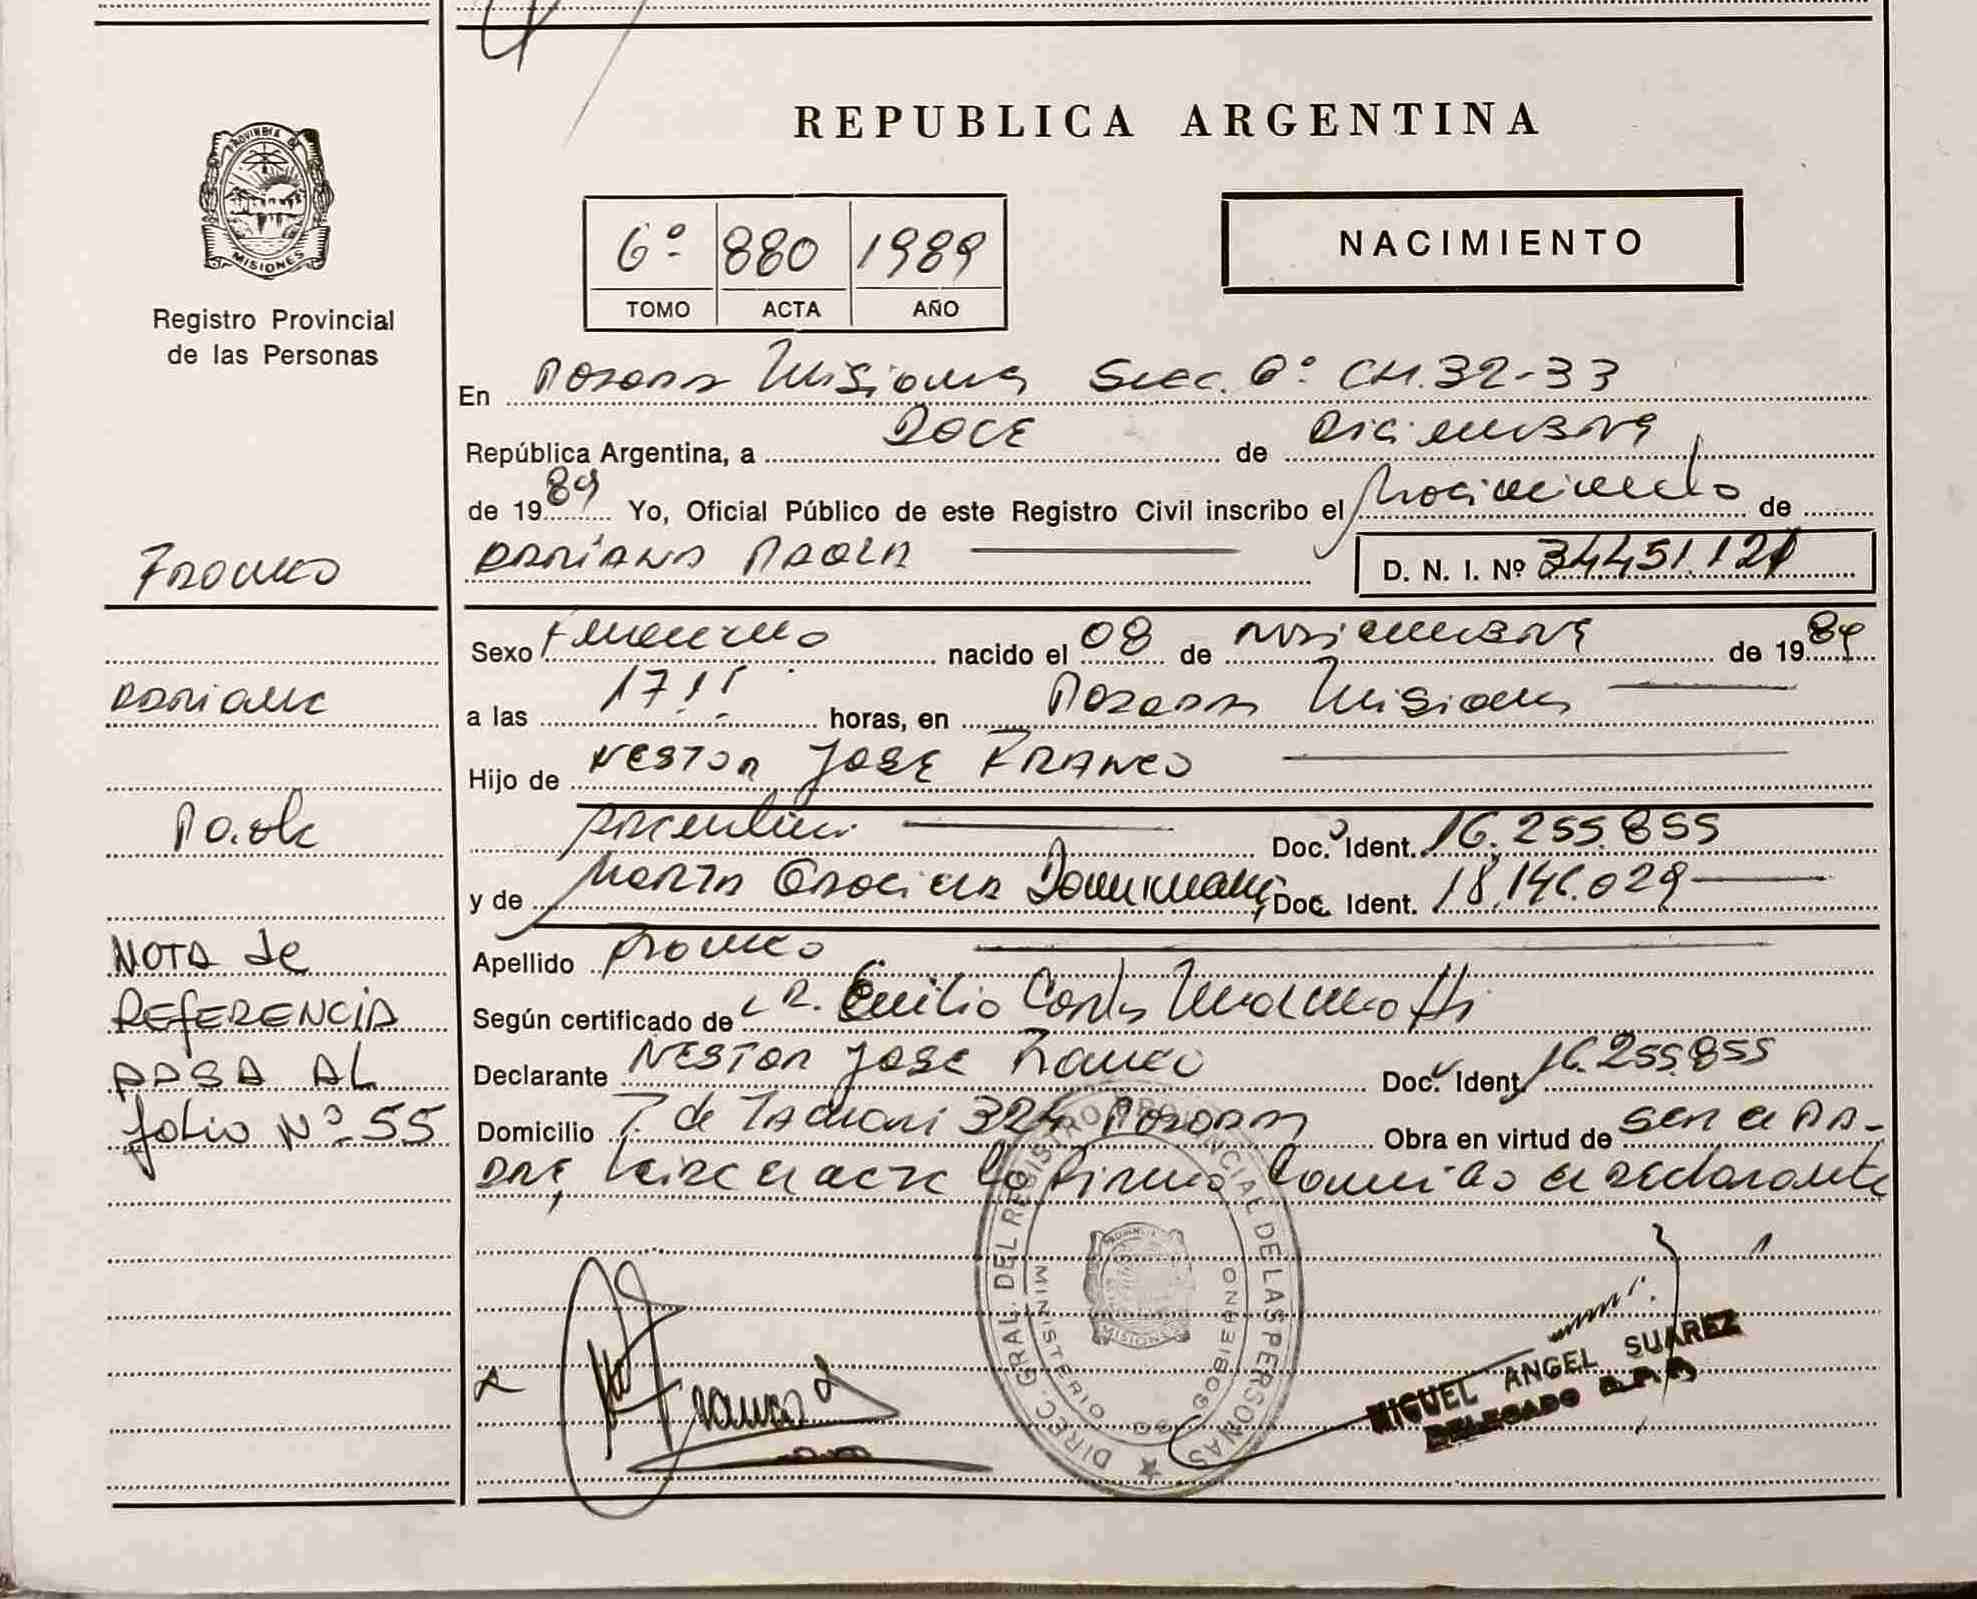 REPUBLICA ARGENTINA
PROVINCIA DE MISIONES
Registro Provincial
de las Personas
6º 880 1989
TOMO ACTA AÑO
NACIMIENTO
En Posadas Misiones Secc. 6º CH. 32-33
República Argentina, a DOCE de Diciembre
de 1989 Yo, Oficial Público de este Registro Civil inscribo el Nacimiento de
DARIANA PAOLA D. N. I. Nº 34.451.121
Franco
Sexo Femenino nacido el 08 de Noviembre de 1989
Dariana
a las 17 horas, en Posadas Misiones
Hijo de NESTOR JOSE FRANCO
Paola
Argentino Doc. Ident. 16.255.855
y de Maria Graciela Doc. Ident. 18.146.029
Apellido Franco
NOTA de
REFERENCIA
PASA AL
folio Nº 55
Según certificado de DR. Emilio Carlos
Declarante NESTOR JOSE Franco Doc. Ident. 16.255.855
Domicilio T. de Tacuari 324 Posadas Obra en virtud de ser el PA-
DRE, Leída el acta la firma conmigo el declarante
DIREC. GRAL. DEL REGISTRO PROVINCIAL DE LAS PERSONAS
MINISTERIO DE GOBIERNO
MISIONES
Franco
MIGUEL ANGEL SUAREZ
DELEGADO R.P.P.